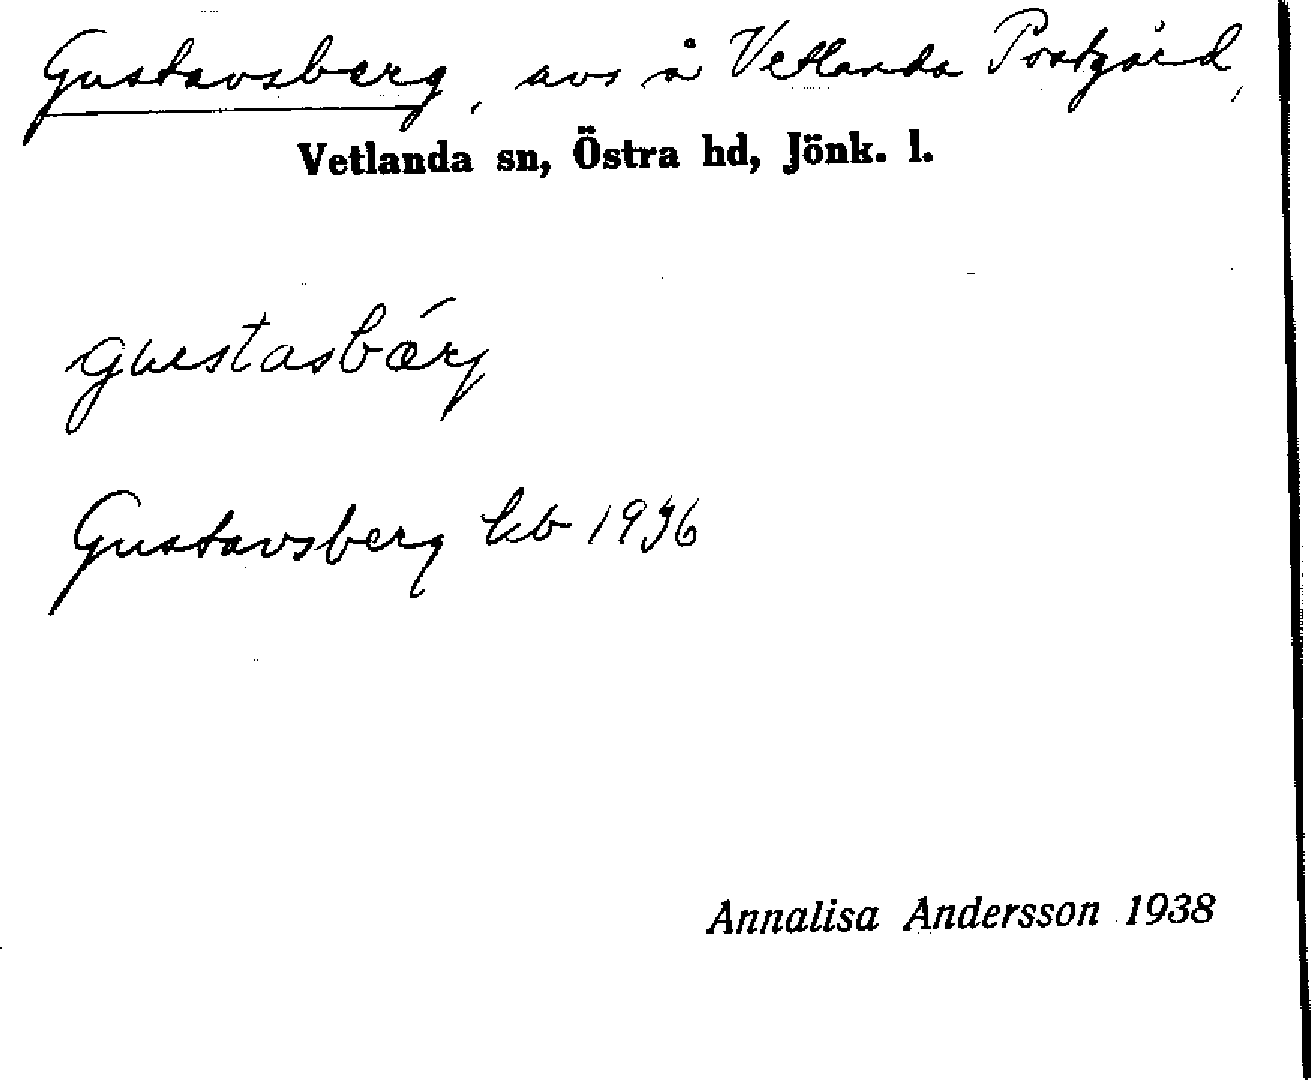 Gustavsberg, avs å Vetlanda Prostgård,
Vetlanda sn, Östra hd, Jönk. l.
gustasbærj
Gustavsberg kb 1936
Annalisa Andersson 1938